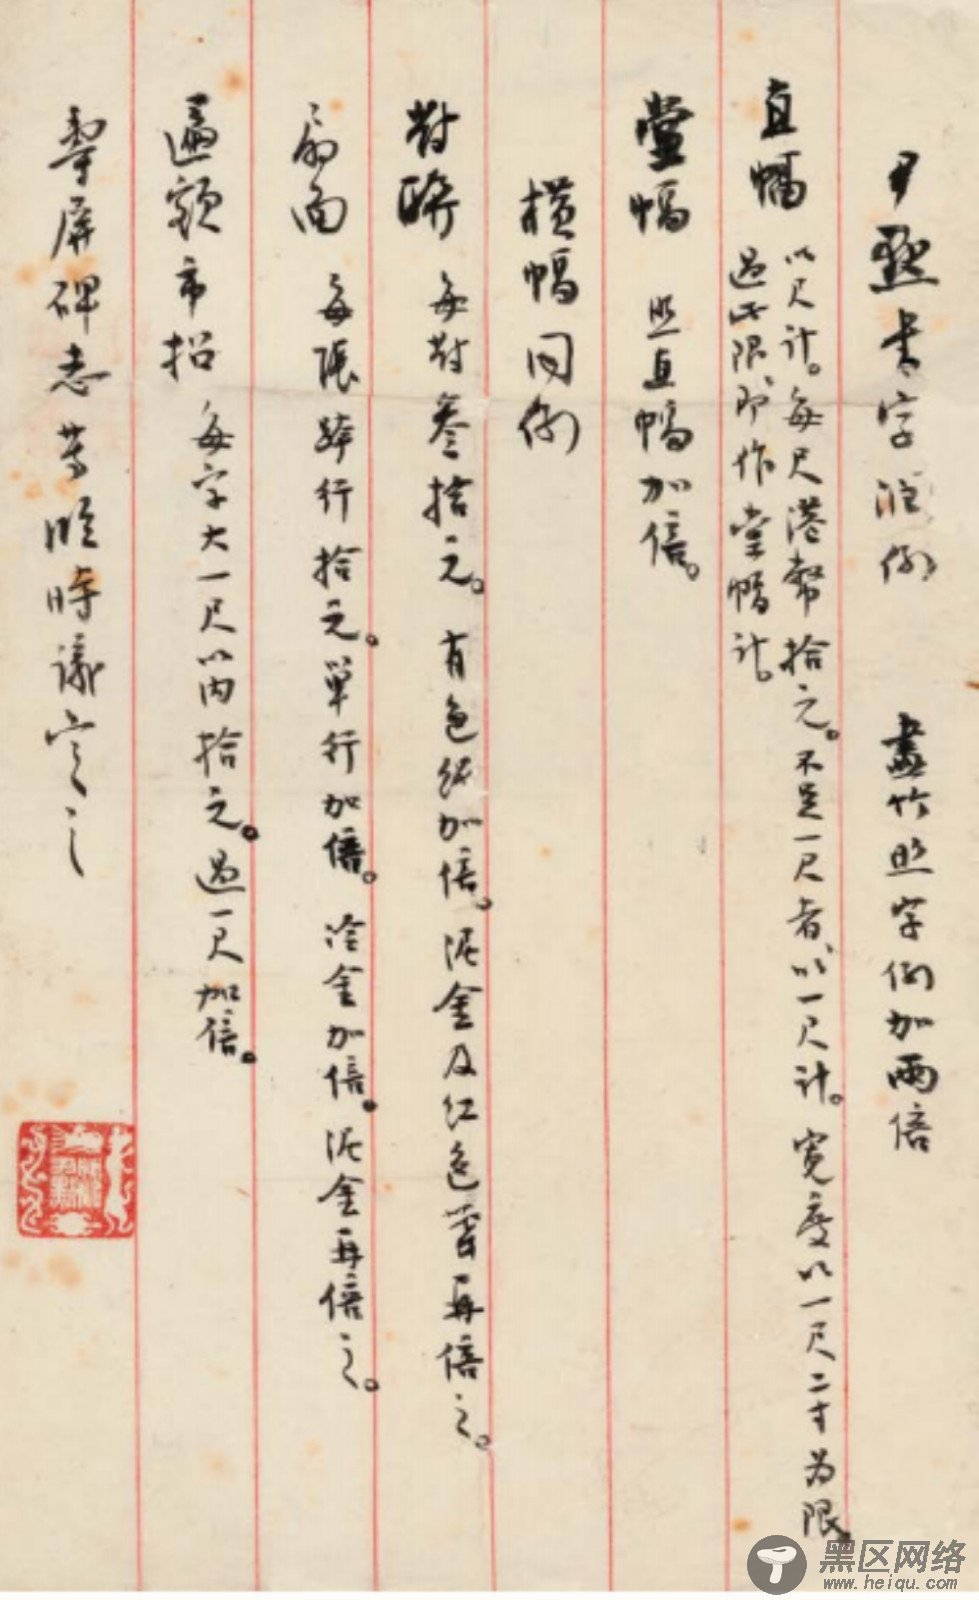 尹默書字潤例　畫竹照字例加兩倍
直幅　以尺計。每尺港幣拾元。不足一尺者、以一尺計。寬度以一尺二寸為限。
過此限、即作堂幅計。
堂幅　照直幅加倍。
橫幅同例
對聯　每對叁拾元。有色紙加倍。泥金及紅色蠟再倍之。
扇面　每張跨行拾元。單行加倍。冷金加倍。泥金再倍之。
匾額市招　每字大一尺以內拾元。過一尺加倍。
壽屏碑志等臨時議定之
黑区网络
www.heiqu.com